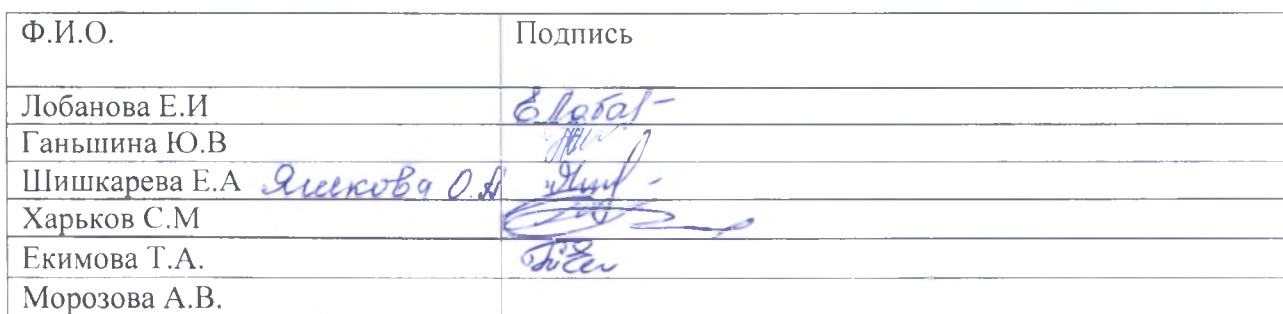 Ф.И.О. Подпись
Лобанова Е.И
Ганьшина Ю.В
Шишкарева Е.А Яшкова О.А
Харьков С.М
Екимова Т.А.
Морозова А.В.